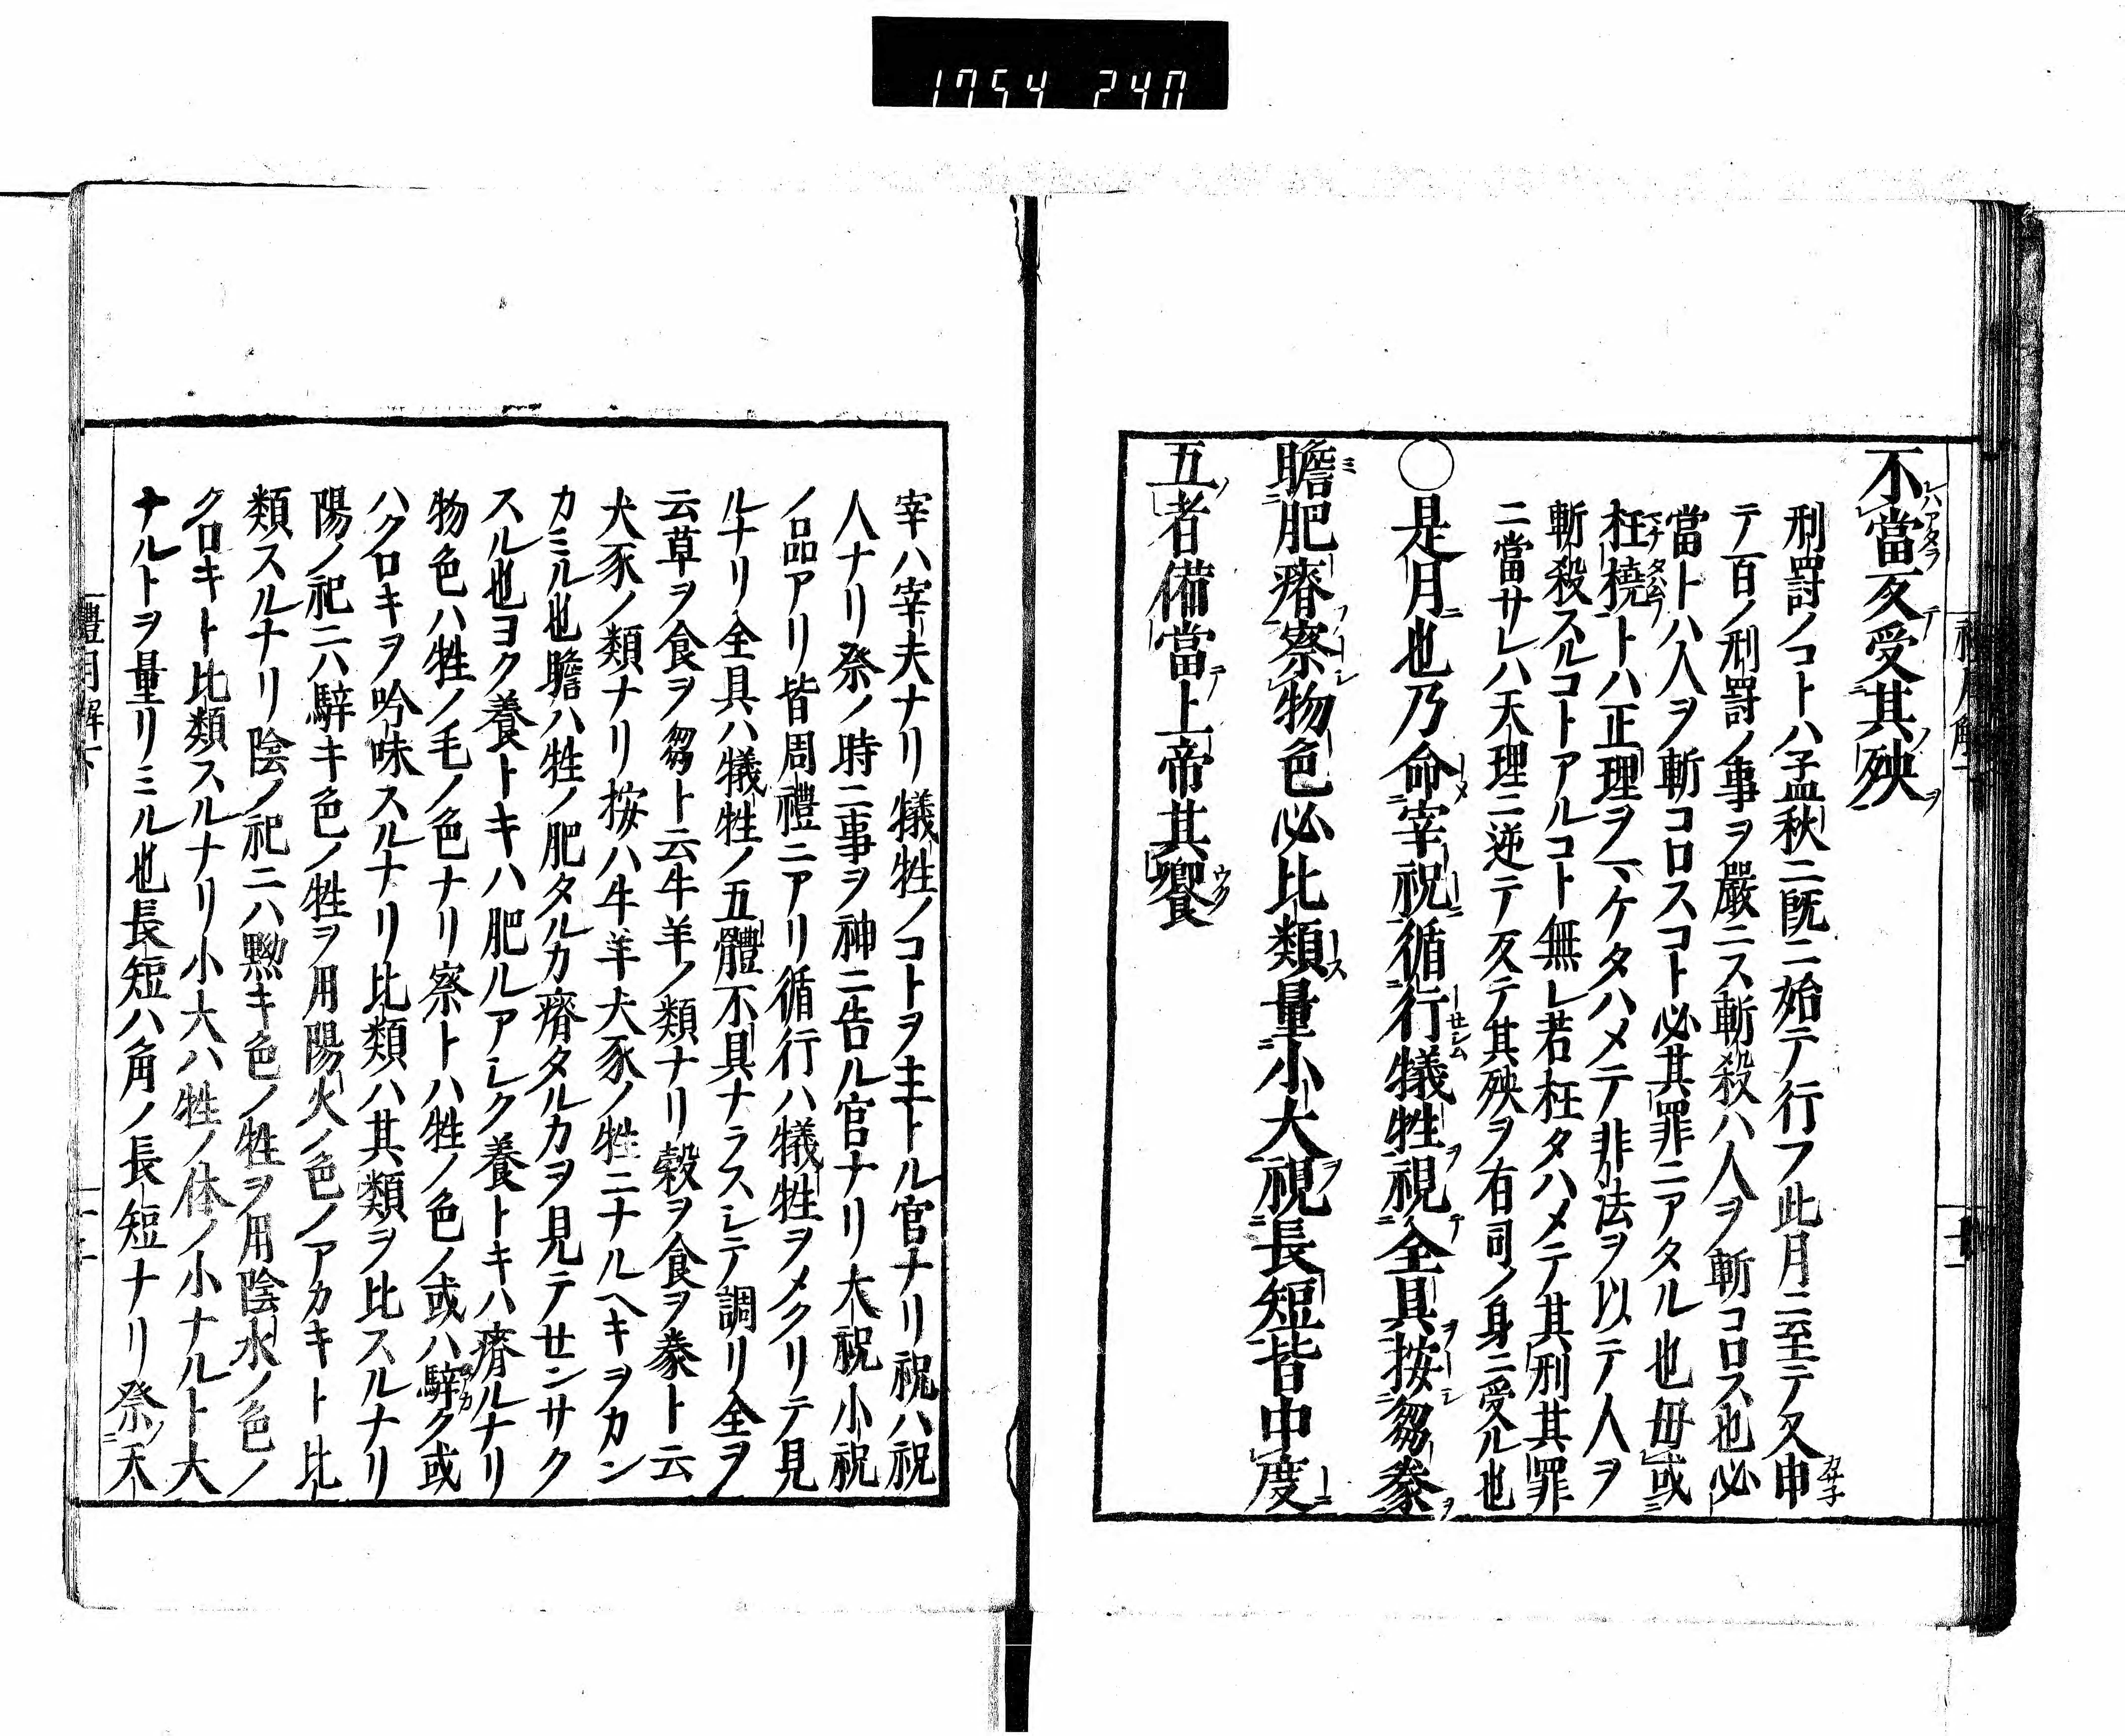 1754 240
不當反受其殃
刑罰ノコトハ孟秋ニ既ニ始テ行フ此月ニ至テ又申
テ百ノ刑罰ノ事ヲ嚴ニス斬殺ハ人ヲ斬コロス也必
當トハ人ヲ斬コロスコト必其罪ニアタル也毋或
枉橈トハ正理ヲマケタハメテ非法ヲ以テ人ヲ
斬殺スルコトアルコト無レ若枉タハメテ其刑其罪
ニ當サレハ天理ニ逆テ反テ其殃ヲ有司ノ身ニ受ル也
○是月也乃命宰祝循行犠牲視全具按芻豢
瞻肥瘠察物色必比類量小大視長短皆中度
五者備當上帝其饗
宰ハ宰夫ナリ犠牲ノコトヲ主トル官ナリ祝ハ祝
人ナリ祭ノ時ニ事ヲ神ニ告ル官ナリ大祝小祝
ノ品アリ皆周禮ニアリ循行ハ犠牲ヲメクリテ見
ルナリ全具ハ犠牲ノ五體不具ナラスシテ調リ全ヲ
云草ヲ食ヲ芻ト云牛羊ノ類ナリ穀ヲ食ヲ豢ト云
犬豕ノ類ナリ按ハ牛羊犬豕ノ牲ニナルヘキヲカン
カミル也瞻ハ牲ノ肥タルカ瘠タルカヲ見テセンサク
スル也ヨク養トキハ肥ルアシク養トキハ瘠ルナリ
物色ハ牲ノ毛ノ色ナリ察トハ牲ノ色ノ或ハ騂ク或
ハクロキヲ吟味スルナリ比類ハ其類ヲ比スルナリ
陽ノ祀ニハ騂キ色ノ牲ヲ用陽火ノ色ノアカキト比
類スルナリ陰ノ祀ニハ黝キ色ノ牲ヲ用陰水ノ色ノ
クロキト比類スルナリ小大ハ牲ノ体ノ小ナルト大
ナルトヲ量リミル也長短ハ角ノ長短ナリ祭天